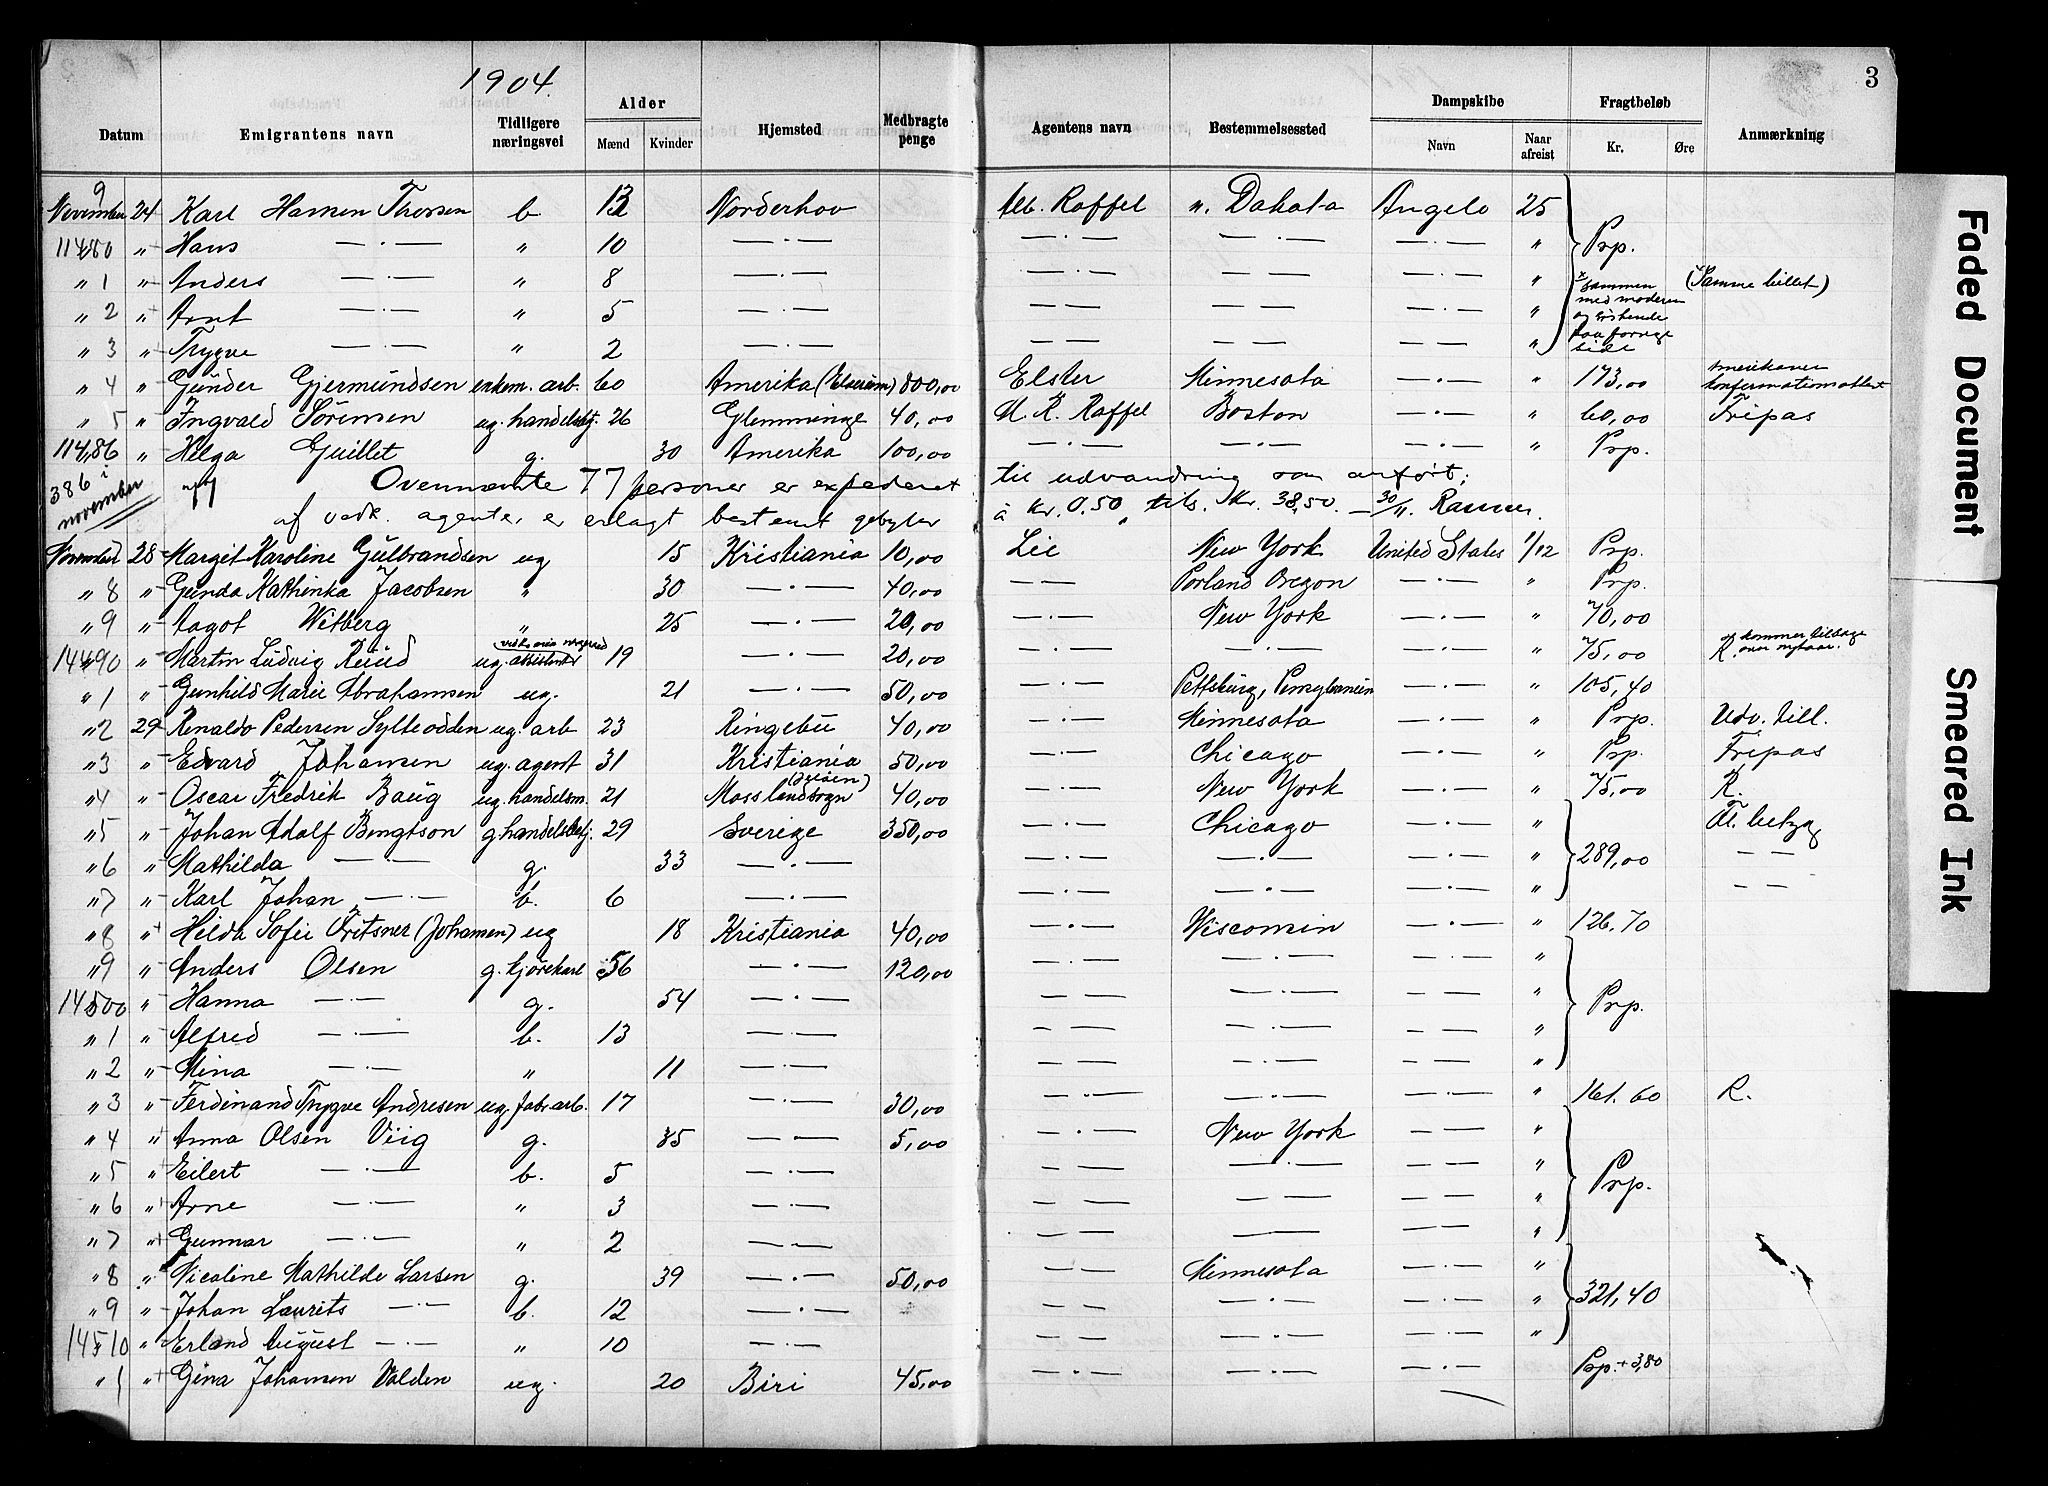 1904.
3
Datum Emigrantens navn Tidligere næringsvei Alder Mænd Kvinder Hjemsted Medbragte penge Agentens navn Bestemmelsessted Dampskibe Navn Naar afreist Fragtbeløb Kr. Øre Anmærkning
9 November 24 Karl Hansen Thorsen b 12 Norderhov Alb. Raffel n. Dakata Angelo 25
11480 " Hans — · — " 10 — · — — · — — · — — · — " Prp.
" 1 " Anders — · — " 8 — · — — · — — · — — · — " sammen med moderen og söskende paa forrige side (Samme billet)
" 2 " Arnt — · — " 5 — · — — — — — — · — "
" 3 " Trygve — · — " 2 — · — — — — — — — "
" 4 " Gunder Gjermundsen enkem. arb. 60 Amerika (Elverum) 800,00 Elster Minnesota — · — " 173,00 Amerikaner konfirmationsattest
" 5 " Ingvald Sörensen ug. handelsbtj. 26 Glemminge 40,00 M. R. Raffel Boston — · — " 60,00 Fripas
11486 " Helga Guillet g. 30 Amerika 100,00 — · — — · — — · — " Prp.
386 i november
Ovennævnte 77 personer er expederet til udvandring som anført;
af vedk. agenter, er erlagt bestemt gebyler á Kr. 0,50, tils. Kr. 38,50. — 30/11.
November 28 Margit Karoline Gulbrandsen ug 15 Kristiania 10,00 Lie New York United States 1/12 Prp.
" 8 " Gunda Kathinka Jacobsen " 30 — · — 40,00 — — Porland Oregon — · — " Prp.
" 9 " Aagot Witberg " 25 — · — 20,00 — · — New York — · — " 70,00
14490 " Martin Ludvig Ruud ug. assistent 19 — · — 20,00 — · — — · — — · — " 75,00 R. kommer tilbage over nytaar.
" 1 " Gunhild Marie Abrahamsen ug. 21 — · — 50,00 — · — Pettsburg, Pensylvanien — · — " 105,40
" 2 29 Renaldo Pedersen Sylteodden ug. arb 23 Ringebu 40,00 — · — Minnesota — · — " Prp. Udv. till.
" 3 " Edvard Johansen ug. agent 31 Kristiania 50,00 — · — Chicago — · — " Prp Fripas
" 4 " Oscar Fredrik Baug ug. handelsm. 21 Moss landsogn (Jelöen) 40,00 — · — New York — · — " 75,00 R.
" 5 " Johan Adolf Bengtson g handelsbetj. 29 Sverige 350,00 — · — Chicago — · — " Fl. betyg
" 6 " Mathilda — · — g. 33 — · — — · — — · — — · — " 289,00 — —
" 7 " Karl Johan — · — b. 6 — · — — · — — · — — · — " — —
" 8 " Hilda Sofie Britsner (Johansen) ug 18 Kristiania 40,00 — · — Wisconsin — · — " 126.70
" 9 " Anders Olsen g. kjörekarl 56 — · — 120,00 — — — · — — · — "
14500 " Hanna — · — g. 54 — · — — — — · — — — " Prp.
" 1 " Alfred — · — b. 13 — · — — — — · — — — "
" 2 " Mina — · — " 11 — · — — — — · — — — "
" 3 " Ferdinand Trygve Andresen ug. fabr.arb. 17 — · — 30,00 — · — — · — — · — " 161.60 R.
" 4 " Anna Olsen Viig g. 35 — · — 5,00 — · — New York — — "
" 5 " Eilert — · — b. 5 — · — — — — · — — — " Prp.
" 6 " Arne — · — " 3 — · — — — — — — · — "
" 7 " Gunnar — · — " 2 — · — — · — — — — · — "
" 8 " Nicoline Mathilde Larsen g. 39 — · — 50,00 — — Minnesota — · — "
" 9 " Johan Laurits — · — b. 12 — · — — — — · — — · — " 321,40
14510 " Erland August — · — " 10 — · — — — — · — — · — "
" 1 " Gina Johansen Volden ug. 20 Biri 45,00 — · — — · — — · — Prp. + 3,80
Faded Document
Smeared Ink